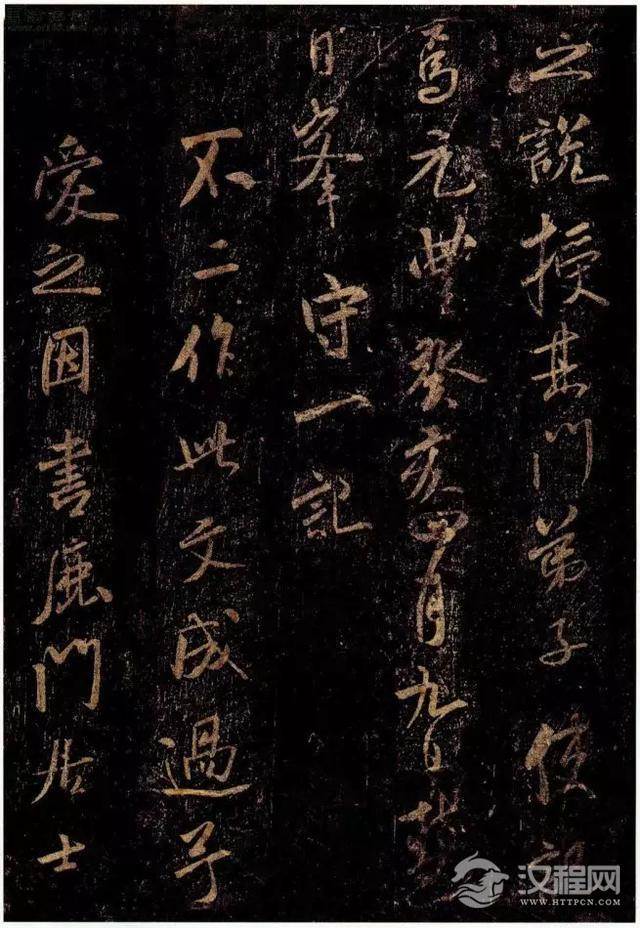 之說授其門弟子使祖
焉元豐癸亥四月九日慧
日峯守一記
不二作此文成過予
愛之因書鹿門居士
汉程网
WWW.HTTPCN.COM